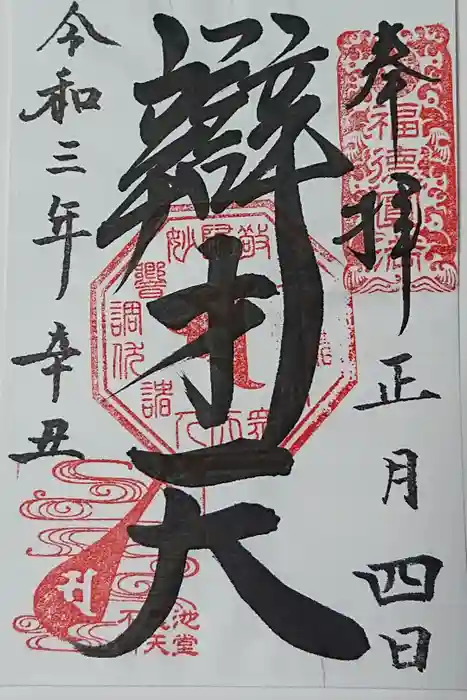 奉拝 正月四日
辯才天
令和三年 辛丑
福徳
池堂
天